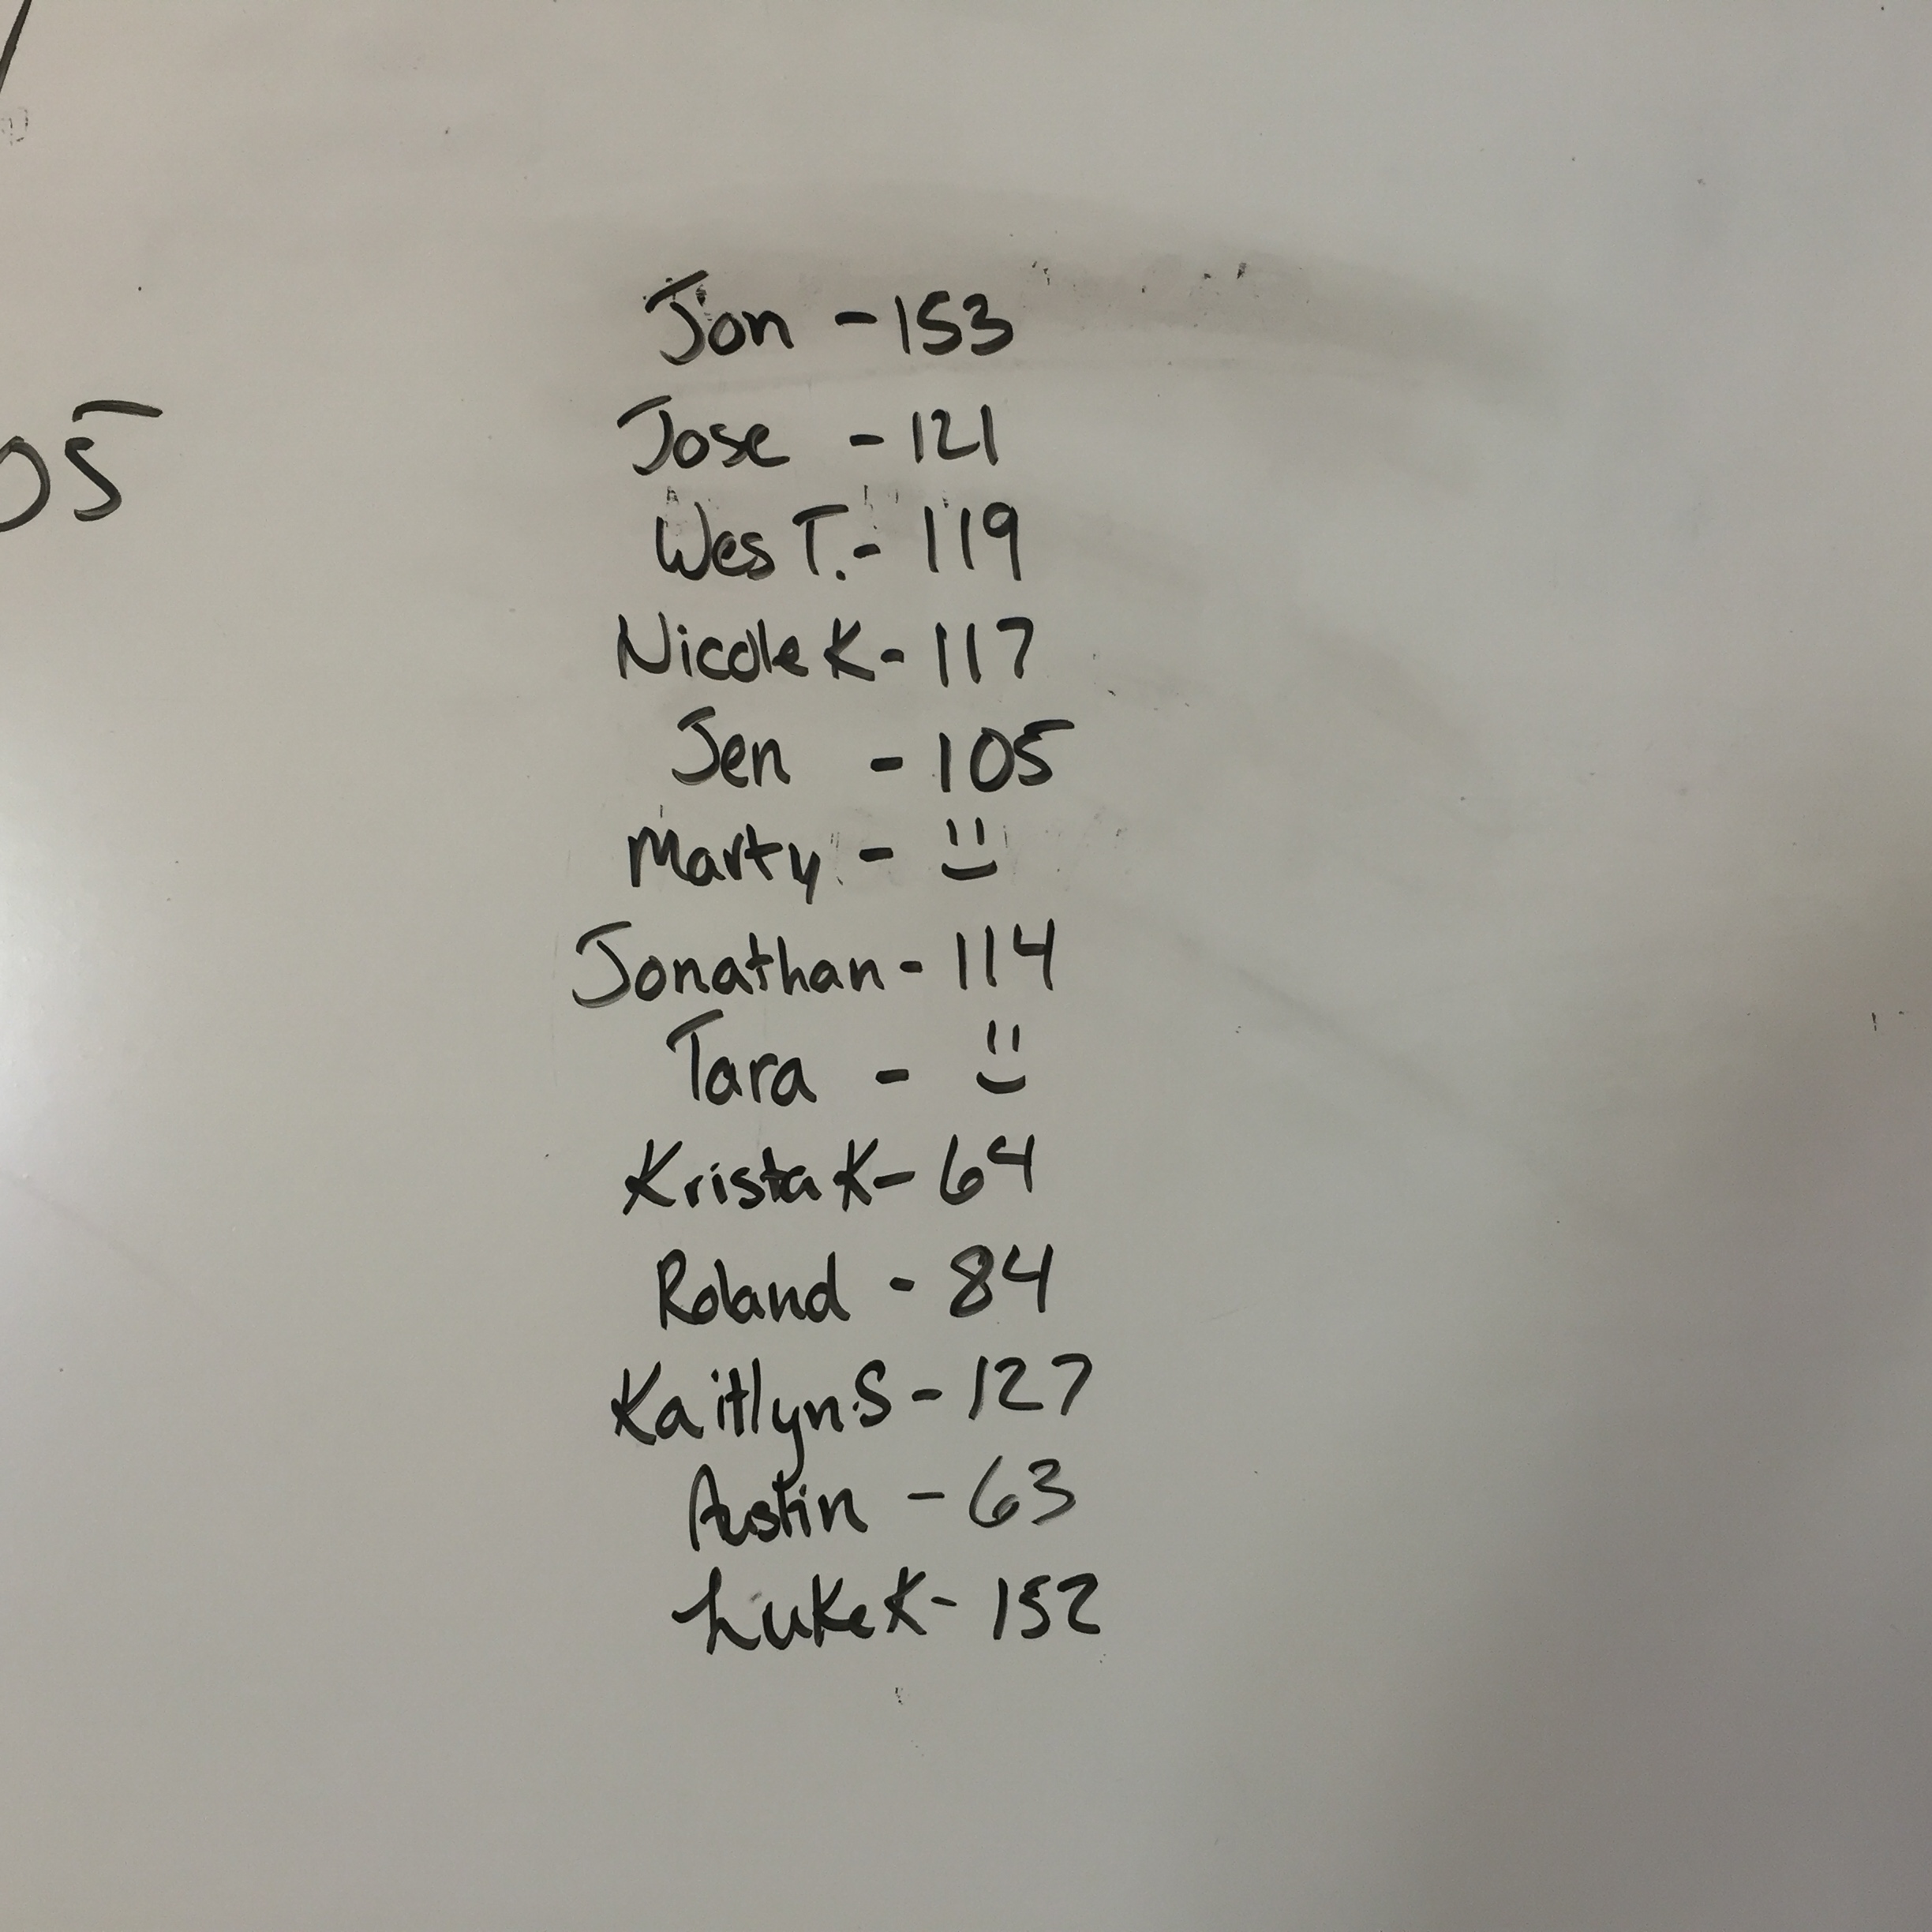 05
Jon - 153
Jose - 121
Wes T. - 119
Nicole K - 117
Jen - 105
Marty - :)
Jonathan - 114
Tara - :)
Krista K - 64
Roland - 84
Kaitlyn S - 127
Austin - 63
Luke K - 152